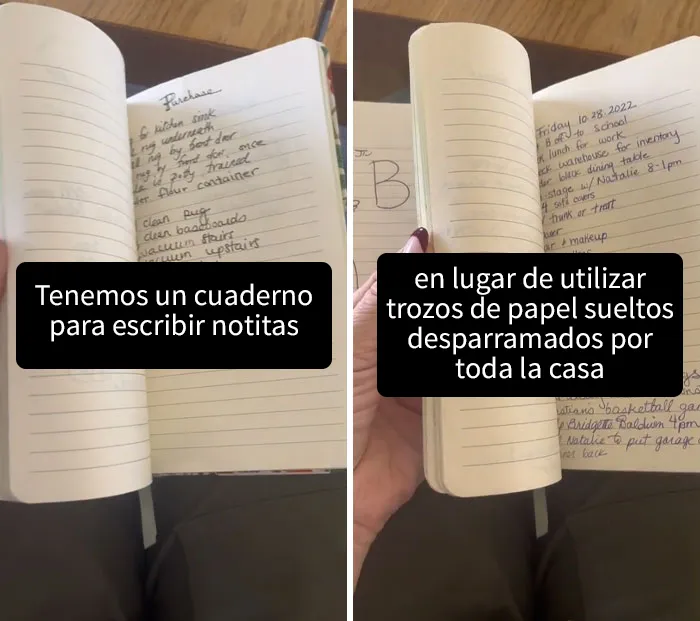 Purchase
for kitchen sink
rug underneath
rug by front door
rug by front door, once
is potty trained
flour container
clean rug
clean baseboards
vacuum stairs
vacuum upstairs
Tenemos un cuaderno
para escribir notitas
B
Friday 10.28.2022
B off to school
lunch for work
warehouse for inventory
black dining table
stage w/ Natalie 8-1pm
sofa covers
trunk or treat
& makeup
en lugar de utilizar
trozos de papel sueltos
desparramados por
toda la casa
basketball
Bridgette Baldwin 4pm
Natalie to put garage
back